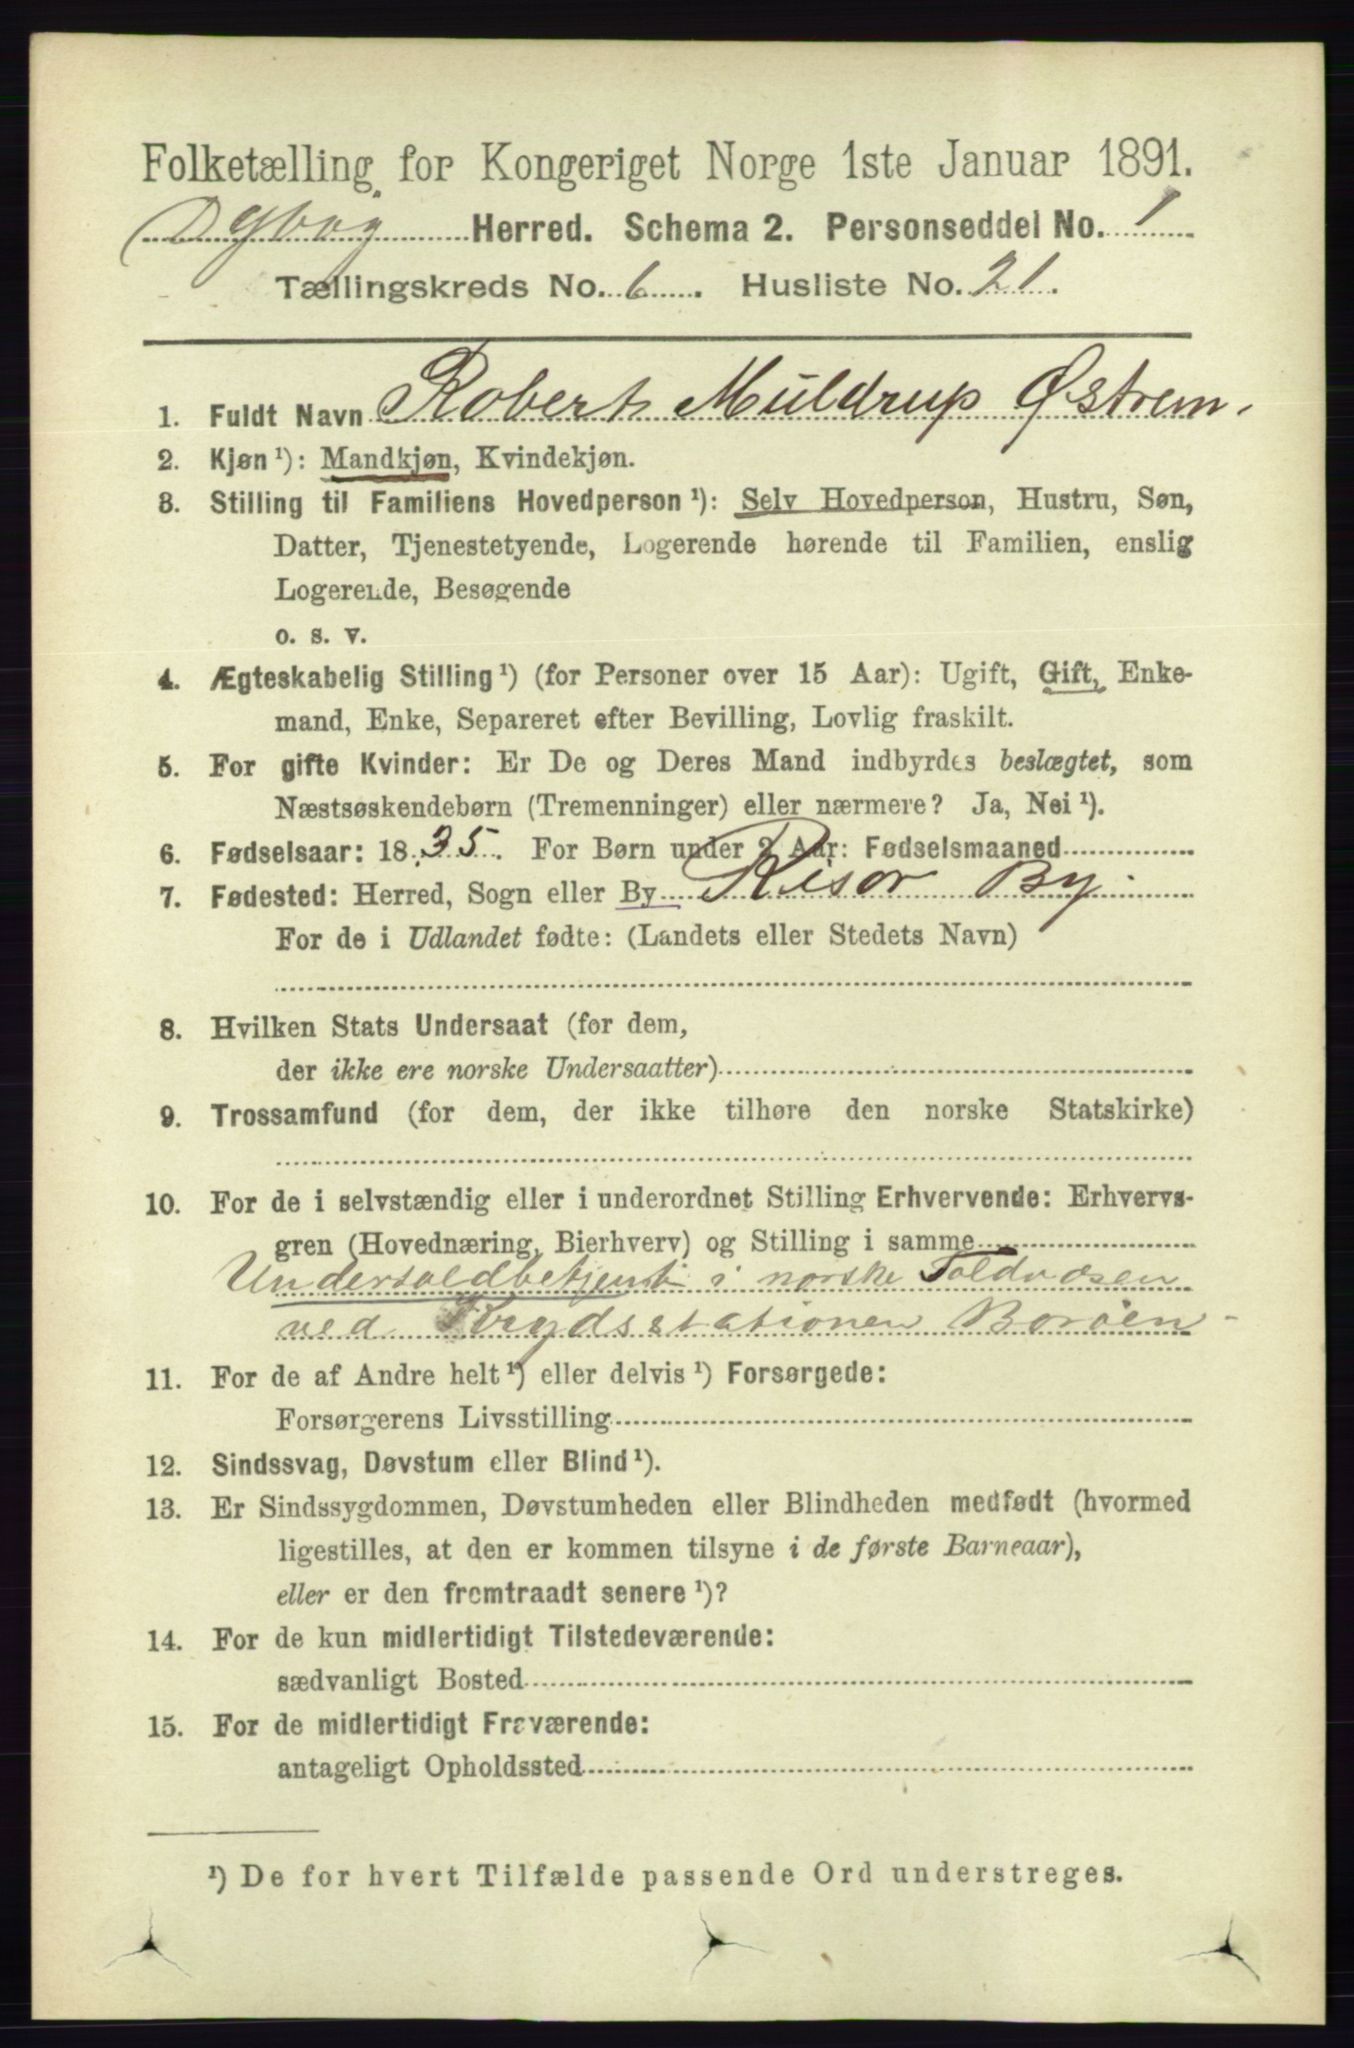 Folketælling for Kongeriget Norge 1ste Januar 1891.
Dybvåg Herred. Schema 2. Personseddel No. 1
Tællingskreds No. 6. Husliste No. 21.
1. Fuldt Navn Robert Muldrup Østrem.
2. Kjøn ¹): Mandkjøn, Kvindekjøn.
3. Stilling til Familiens Hovedperson ¹): Selv Hovedperson, Hustru, Søn,
Datter, Tjenestetyende, Logerende hørende til Familien, enslig
Logerende, Besøgende
o. s. v.
4. Ægteskabelig Stilling ¹) (for Personer over 15 Aar): Ugift, Gift, Enke-
mand, Enke, Separeret efter Bevilling, Lovlig fraskilt.
5. For gifte Kvinder: Er De og Deres Mand indbyrdes beslægtet, som
Næstsøskendebørn (Tremenninger) eller nærmere? Ja, Nei ¹).
6. Fødselsaar: 1835. For Børn under 2 Aar: Fødselsmaaned
7. Fødested: Herred, Sogn eller By Risør By.
For de i Udlandet fødte: (Landets eller Stedets Navn)
8. Hvilken Stats Undersaat (for dem,
der ikke ere norske Undersaatter)
9. Trossamfund (for dem, der ikke tilhøre den norske Statskirke)
10. For de i selvstændig eller i underordnet Stilling Erhvervende: Erhvervs-
gren (Hovednæring, Bierhverv) og Stilling i samme
Undertoldbetjent i norske Toldvæsen
ved Krydsstationen Borøen
11. For de af Andre helt ¹) eller delvis ¹) Forsørgede:
Forsørgerens Livsstilling
12. Sindssvag, Døvstum eller Blind ¹).
13. Er Sindssygdommen, Døvstumheden eller Blindheden medfødt (hvormed
ligestilles, at den er kommen tilsyne i de første Barneaar),
eller er den fremtraadt senere ¹)?
14. For de kun midlertidigt Tilstedeværende:
sædvanligt Bosted
15. For de midlertidigt Fraværende:
antageligt Opholdssted
¹) De for hvert Tilfælde passende Ord understreges.